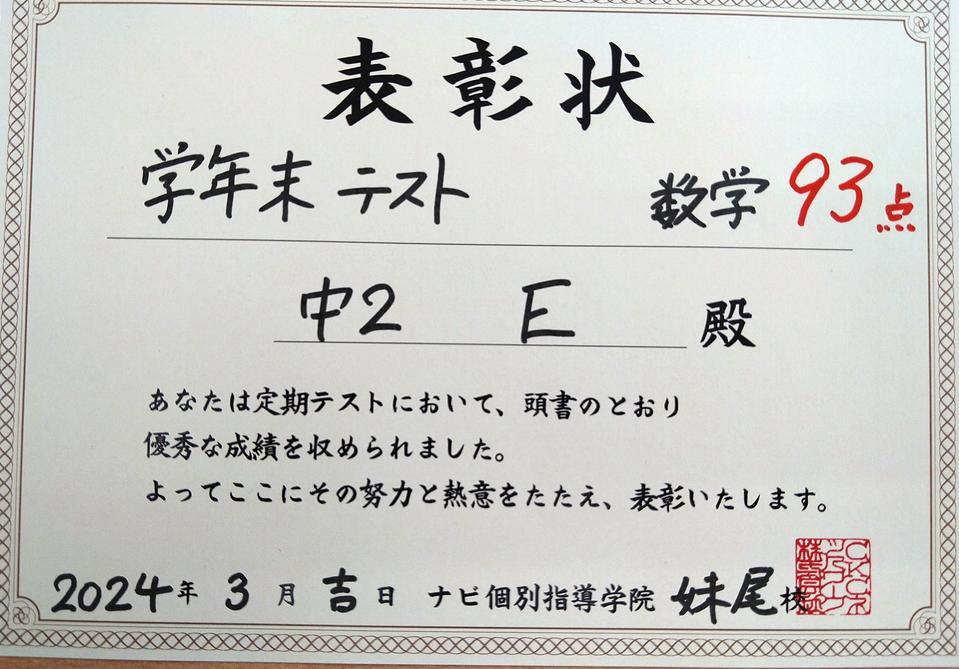 表彰状
学年末 テスト 数学 93点
中2 E 殿
あなたは定期テストにおいて、頭書のとおり
優秀な成績を収められました。
よってここにその努力と熱意をたたえ、表彰いたします。
2024年 3月 吉日 ナビ個別指導学院 妹尾校